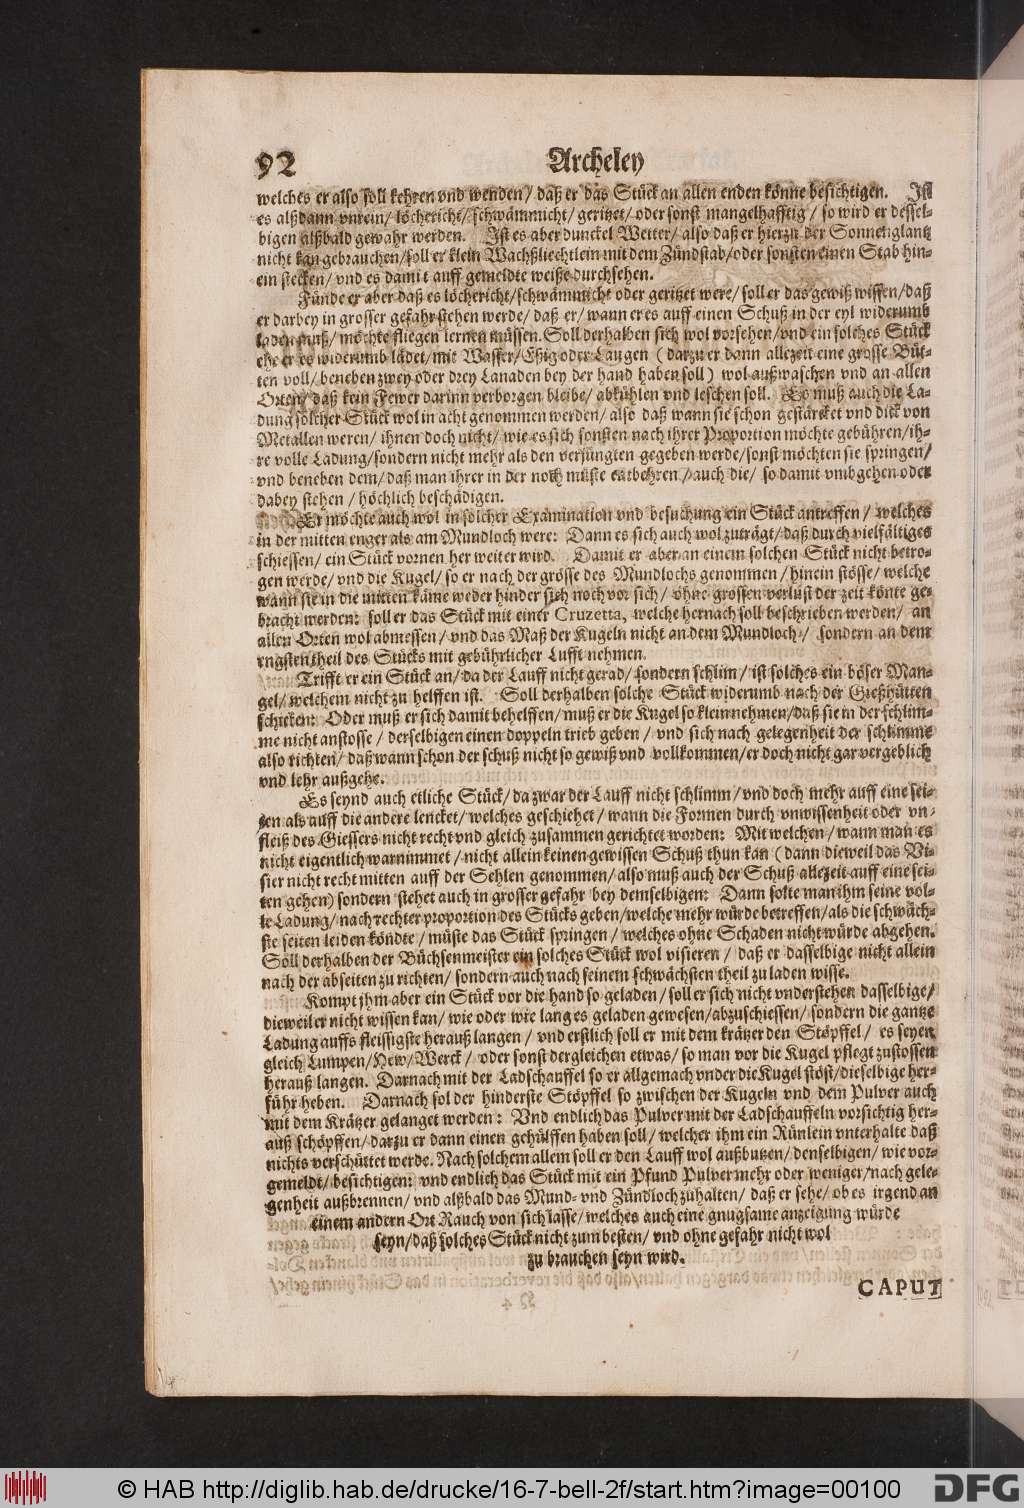 92 Archeley
welches er also soll kehren vnd wenden/ daß er das Stück an allen enden könne besichtigen. Ist
es alßdann vnrein/ löchericht/ schwämmicht/ geritzet/ oder sonst mangelhafftig/ so wird er dessel-
bigen alßbald gewahr werden. Ist es aber dunckel Wetter/ also daß er hierzu der Sonnenglantz
nicht kan gebrauchen/ soll er klein Wachßliechtlein mit dem Zündstab/ oder sonsten einen Stab hin-
ein stecken/ vnd es damit auff gemeldte weiße durchsehen.
Fünde er aber daß es löchericht/ schwämmicht oder geritzet were/ soll er das gewiß wissen/ daß
er darbey in grosser gefahr stehen werde/ daß er/ wann er es auff einen Schuß in der eyl widerumb
laden muß/ möchte fliegen lernen müssen. Soll derhalben sich wol vorsehen/ vnd ein solches Stück
ehe er es widerumb lädet/ mit Wasser/ Eßig oder Laugen (darzu er dann allezeit eine grosse Büt-
ten voll/ beneben zwey oder drey Lanaden bey der hand haben soll) wol außwaschen vnd an allen
Orten/ daß kein Fewer darinn verborgen bleibe/ abkühlen vnd leschen soll. Es muß auch die La-
dung solcher Stück wol in acht genommen werden/ also daß wann sie schon gestärcket vnd dick von
Metallen weren/ ihnen doch nicht/ wie es sich sonsten nach ihrer Proportion möchte gebühren/ ih-
re volle Ladung/ sondern nicht mehr als den verjüngten gegeben werde/ sonst möchten sie springen/
vnd beneben dem/ daß man ihrer in der noth müste entbehren/ auch die/ so damit vmbgehen oder
dabey stehen/ höchlich beschädigen.
Er möchte auch wol in solcher Examination vnd besuchung ein Stück antreffen/ welches
in der mitten enger als am Mundloch were: Dann es sich auch wol zuträgt/ daß durch vielfältiges
schiessen/ ein Stück vornen her weiter wird. Damit er aber an einem solchen Stück nicht betro-
gen werde/ vnd die Kugel/ so er nach der grösse des Mundlochs genommen/ hinein stösse/ welche
wann sie in die mitten käme weder hinder sich noch vor sich/ ohne grossen verlust der zeit könte ge-
bracht werden: soll er das Stück mit einer Cruzetta, welche hernach soll beschrieben werden/ an
allen Orten wol abmessen/ vnd das Maß der Kugeln nicht an dem Mundloch/ sondern an dem
engsten theil des Stücks mit gebührlicher Lufft nehmen.
Trifft er ein Stück an/ da der Lauff nicht gerad/ sondern schlim/ ist solches ein böser Man-
gel/ welchem nicht zu helffen ist. Soll derhalben solche Stück widerumb nach der Gießhütten
schicken: Oder muß er sich damit behelffen/ muß er die Kugel so klein nehmen/ daß sie in der schlim-
me nicht anstosse/ derselbigen einen doppeln trieb geben/ vnd sich nach gelegenheit der schlimme
also richten/ daß wann schon der schuß nicht so gewiß vnd vollkommen/ er doch nicht gar vergeblich
vnd lehr außgehe.
Es seynd auch etliche Stück/ da zwar der Lauff nicht schlimm/ vnd doch mehr auff eine sei-
ten als auff die andere lencket/ welches geschiehet/ wann die Formen durch vnwissenheit oder vn-
fleiß des Giessers nicht recht vnd gleich zusammen gerichtet worden: Mit welchen/ wann man es
nicht eigentlich warnimmet/ nicht allein keinen gewissen Schuß thun kan (dann dieweil das Vi-
sier nicht recht mitten auff der Sehlen genommen/ also muß auch der Schuß allezeit auff eine sei-
ten gehen) sondern stehet auch in grosser gefahr bey demselbigen: Dann solte man ihm seine vol-
le Ladung/ nach rechter proportion des Stücks geben/ welche mehr würde betreffen/ als die schwäch-
ste seiten leiden köndte/ müste das Stück springen/ welches ohne Schaden nicht würde abgehen.
Soll derhalben der Büchsenmeister ein solches Stück wol visieren/ daß er dasselbige nicht allein
nach der abseiten zu richten/ sondern auch nach seinem schwächsten theil zu laden wisse.
Kompt jhm aber ein Stück vor die hand so geladen/ soll er sich nicht vnderstehen dasselbige/
dieweil er nicht wissen kan/ wie oder wie lang es geladen gewesen/ abzuschiessen/ sondern die gantze
Ladung auffs fleissigste herauß langen/ vnd erstlich soll er mit dem krätzer den Stöpffel/ es seyen
gleich Lumpen/ Hew/ Werck/ oder sonst dergleichen etwas/ so man vor die Kugel pflegt zustossen
herauß langen. Darnach mit der Ladschauffel so er allgemach vnder die Kugel stöst/ dieselbige her-
führ heben. Darnach sol der hinderste Stöpffel so zwischen der Kugeln vnd dem Pulver auch
mit dem Krätzer gelanget werden: Vnd endlich das Pulver mit der Ladschauffeln vorsichtig her-
auß schöpffen/ darzu er dann einen gehülffen haben soll/ welcher ihm ein Rünlein vnterhalte daß
nichts verschüttet werde. Nach solchem allem soll er den Lauff wol außbutzen/ denselbigen/ wie vor-
gemeldt/ besichtigen: vnd endlich das Stück mit ein Pfund Pulver mehr oder weniger/ nach gele-
genheit außbrennen/ vnd alßbald das Mund- vnd Zündloch zuhalten/ daß er sehe/ ob es irgend an
einem andern Ort Rauch von sich lasse/ welches auch eine gnugsame anzeigung würde
seyn/ daß solches Stück nicht zum besten/ vnd ohne gefahr nicht wol
zu brauchen seyn wird.
CAPUT
© HAB http://diglib.hab.de/drucke/16-7-bell-2f/start.htm?image=00100
DFG